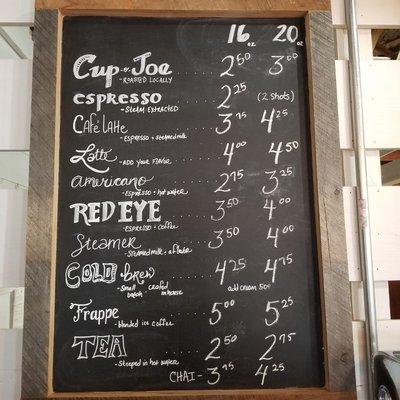 16 oz 20 oz
Cup-o-Joe 2.50 3.00
- ROASTED LOCALLY
espresso 2.25 (2 shots)
- STEAM EXTRACTED
Cafe latte 3.75 4.25
- ESPRESSO + steamed milk
Latte 4.00 4.50
- ADD your FLAVOR
americano 2.75 3.25
- ESPRESSO + hot water
RED EYE 3.50 4.00
- ESPRESSO + coffee
Steamer 3.50 4.00
- Steamed milk + a flavor
COLD brew 4.25 4.75
- Small batch crafted in house add cream 50¢
Frappe 5.00 5.25
- blended ice coffee
TEA 2.50 2.75
- Steeped in hot water
CHAI - 3.75 4.25